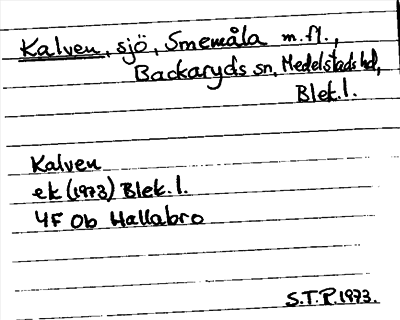 Kalven, sjö, Smemåla m.fl.,
Backaryds sn, Medelstads hd,
Blek.l.
Kalven
ek (1973) Blek.l.
4F Ob Hallabro
S.T.P. 1973.